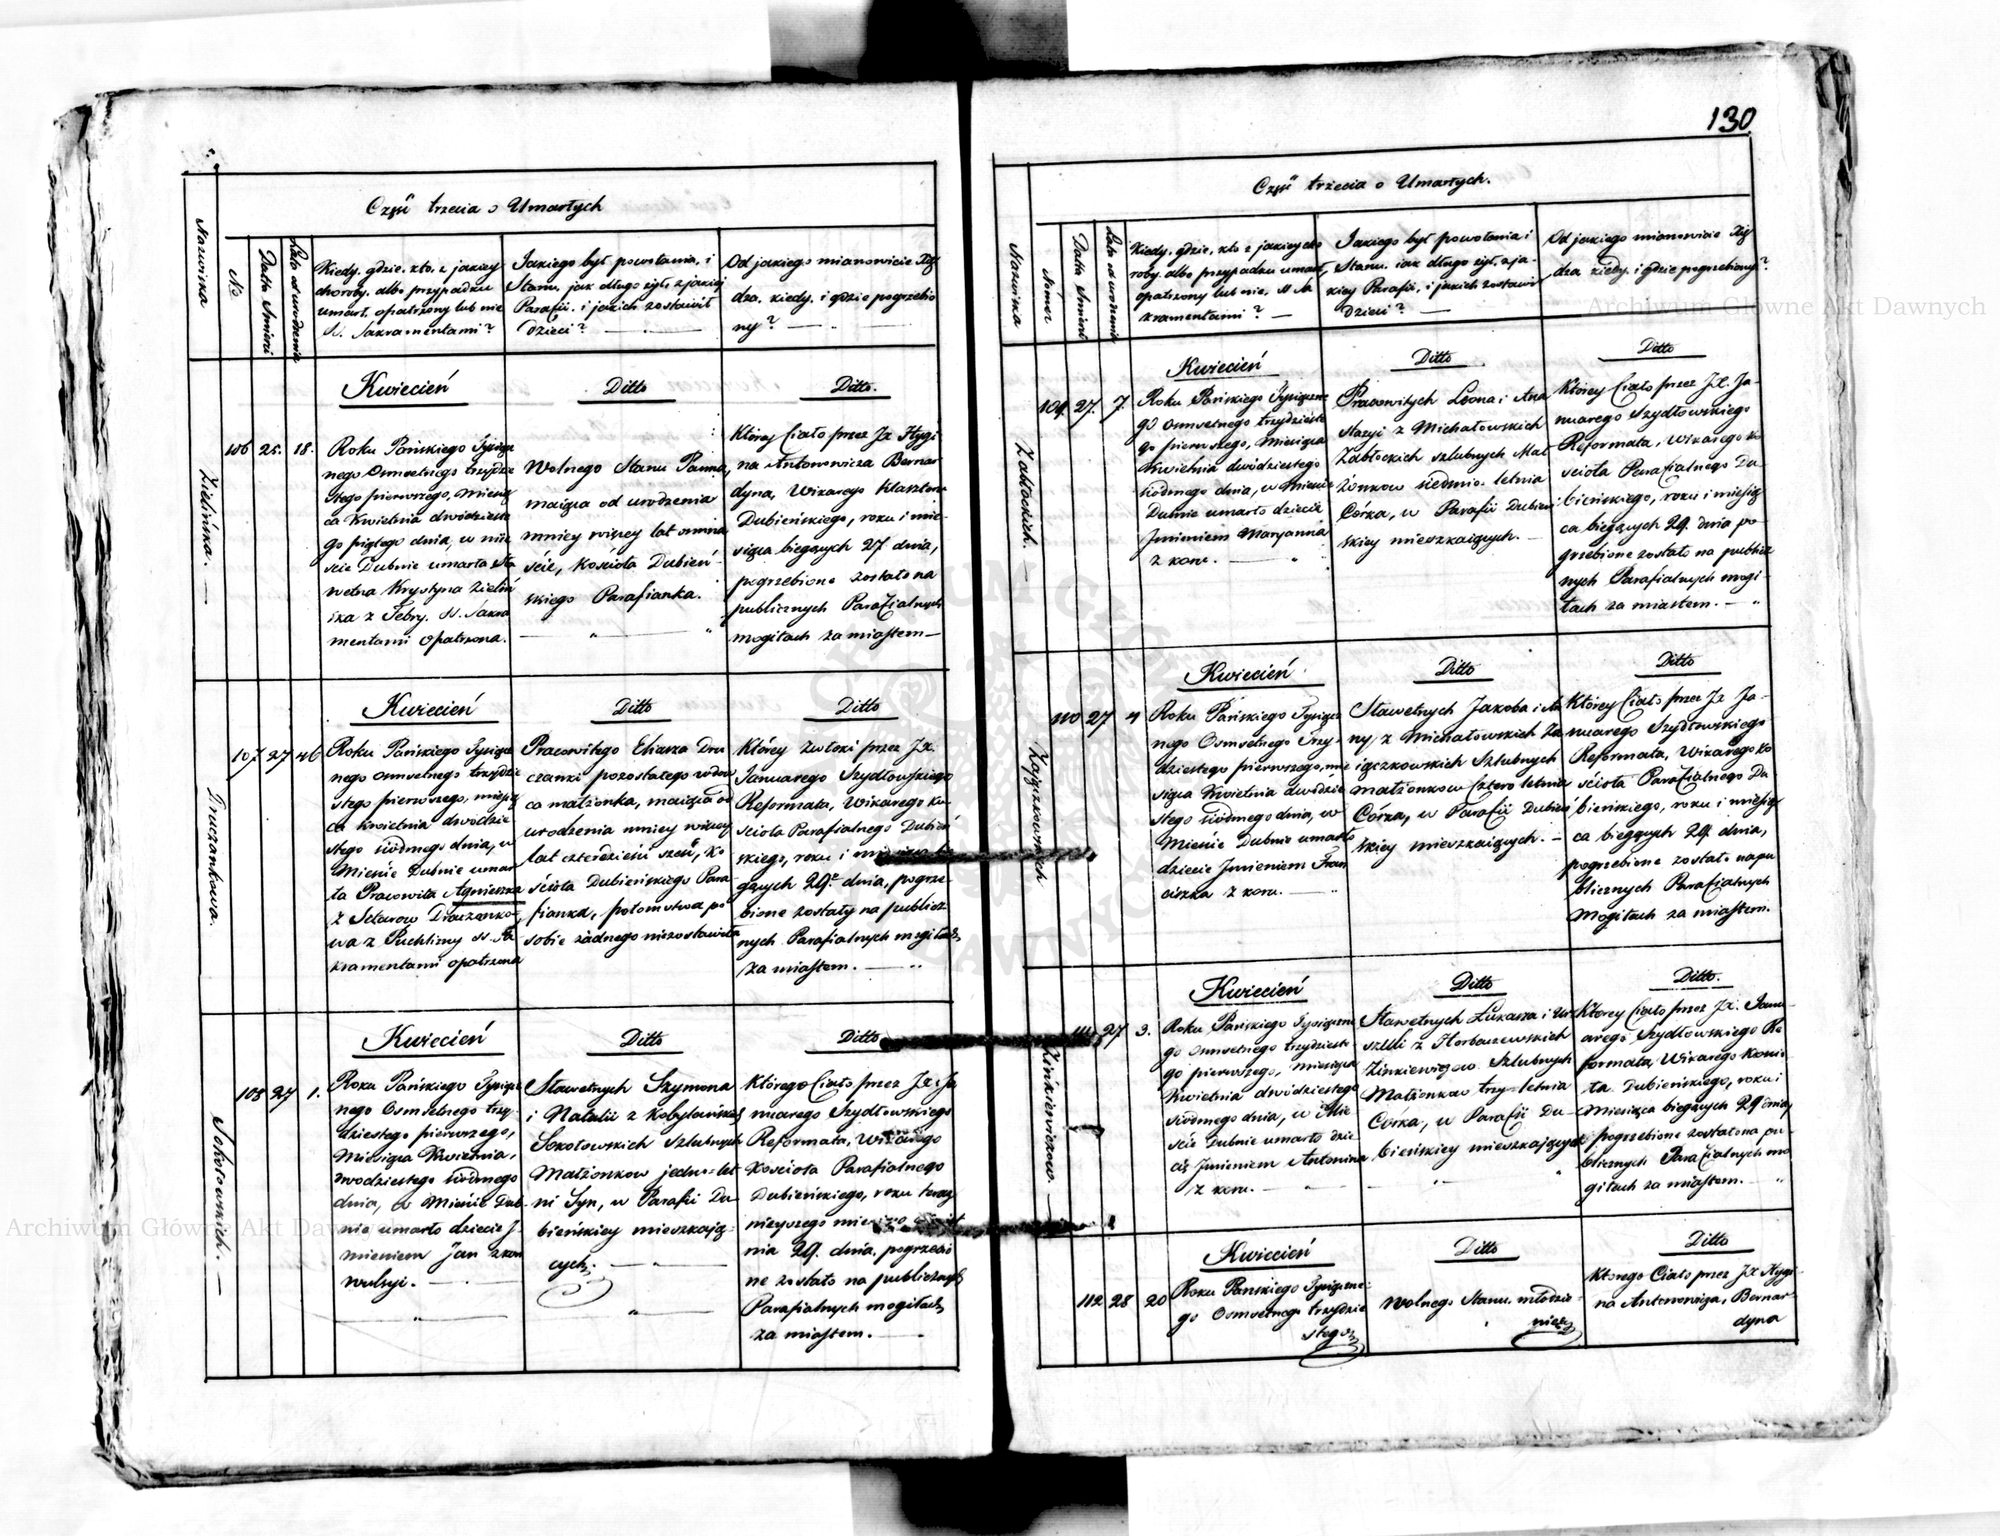 130
Część trzecia o Umarłych
Nazwiska
No
Datta Smierci
Lata od urodzenia
Kiedy, gdzie, kto, z jakiey
choroby, albo przypadku
umarł, opatrzony lub nie
SS. Sakramentami?
Jakiego był powołania, i
Stanu, jak długo żył, z jakiej
Parafii, i jakich zostawił
dzieci?
Od jakiego mianowicie Xię
dza, kiedy, i gdzie pogrzebio
ny?
Zielińska.
Kwiecień
106 25. 18.
Roku Pańskiego Tysiącz
nego Osmsetnego trzydzie
stego pierwszego, miesią
ca Kwietnia dwudzieste
go piątego dnia, w mie
ście Dubnie umarła Sta
wetna Krystyna Zieliń
ska z Febry, SS. Sakra
mentami opatrzona.
Ditto
Wolnego Stanu Panna,
maiąca od urodzenia
mniey więcey lat ośmna
ście, Kościoła Dubień
skiego Parafianka.
Ditto.
Którey Ciało przez JX Hygi
na Antonowicza Bernar
dyna, Wikarego Klasztoru
Dubieńskiego, roku i mie
siąca bieżących 27 dnia,
pogrzebione zostało na
publicznych Parafialnych
mogiłach za miastem
Druczankowa.
Kwiecień
107. 27 46
Roku Pańskiego Tysiącz
nego osmsetnego trzydzie
stego pierwszego, miesią
ca Kwietnia dwódzie
stego siódmego dnia, w
Mieście Dubnie umar
ła Pracowita Agnieszka
z Sclarow Druczanko
wa z Puchliny SS. Sa
kramentami opatrzona
Ditto
Pracowitego Eliasza Dru
czanki pozostałego wdow
ca małżonka, maiąca od
urodzenia mniey więcey
lat czterdzieści sześć, Ko
ścioła Dubieńskiego Para
fianka, potomstwa po
sobie żadnego niezostawiła
Ditto
Którey zwłoki przez JX.
Januarego Szydłowskiego
Reformata, Wikarego Ko
ścioła Parafialnego Dubień
skiego, roku i miesiąca bie
żących 29. dnia, pogrze
bione zostały na publicz
nych Parafialnych mogiłach
za miastem.
Sokołowskich.
Kwiecień
108 27 1.
Roku Pańskiego Tysiącz
nego Osmsetnego trzy
dziestego pierwszego,
Miesiąca Kwietnia,
dwodziestego siódmego
dnia, w Mieście Dub
nie umarło dziecie I
mieniem Jan z kon
wulsyi.
Ditto
Sławetnych Szymona
i Natalii z Kobylańskich
Sokołowskich Szlubnych
Małżonkow jedno-let
ni Syn, w Parafii Du
bieńskiey mieszkają
cych.
Ditto
Którego Ciało przez JX. Ja
nuarego Szydłowskiego
Reformata, Wikarego
Kościoła Parafialnego
Dubieńskiego, roku teraz
nieyszego
nia 29. dnia, pogrzebio
ne zostało na publicznych
Parafialnych mogiłach
za miastem.
Część trzecia o Umarłych.
Nazwiska
Numer
Datta Smierci
Lata od urodzenia
Kiedy, gdzie, kto z jakiey cho
roby, albo przypadku umarł,
opatrzony lub nie, SS Sa
kramentami?
Jakiego był powołania i
Stanu, jak długo żył, z ja
kiey Parafii, i jakich zostawił
dzieci?
Od jakiego mianowicie Xię
dza kiedy, i gdzie pogrzebiony?
Zabłockich.
Kwiecień
109. 27. 7.
Roku Pańskiego Tysiączne
go osmsetnego trzydzieste
go pierwszego, Miesiąca
Kwietnia dwódziestego
siódmego dnia, w Mieście
Dubnie umarło dziecie
Imieniem Maryanna
z koru.
Ditto
Pracowitych Leona i Ana
stazyi z Michałowskich
Zabłockich szlubnych Mał
żonkow siedmio-letnia
Córka, w Parafii Dubień
skiey mieszkaiących.
Ditto
Którey Ciało przez JX. Ja
nuarego Szydłowskiego
Reformata, Wikarego Ko
ścioła Parafialnego Du
bieńskiego, roku i miesią
ca bieżących 29. dnia po
grzebione zostało na publicz
nych Parafialnych mogi
łach za miastem.
Kwiecień
110 27 4
Roku Pańskiego Tysiącz
nego Osmsetnego Trzy
dziestego pierwszego, mie
siąca Kwietnia dwódzie
stego siódmego dnia, w
Mieście Dubnie umarło
dziecie Imieniem Fran
ciszka z koru.
Ditto
Sławetnych Jakoba i An
ny z Michałowskich Za
iączkowskich Szlubnych
małżonkow cztero letnia
Córka, w Parafii Dubień
skiey mieszkaiących.
Ditto
Którey Ciało przez JX Ja
nuarego Szydłowskiego
Reformata, Wikarego Ko
ścioła Parafialnego Du
bieńskiego, roku i miesią
ca bieżących 29. dnia,
pogrzebione zostało na pu
blicznych Parafialnych
Mogiłach za miastem.
Zinkiewiczow.
Kwiecień
111. 27 3.
Roku Pańskiego Tysiączne
go Osmsetnego trzydzieste
go pierwszego, miesiąca
Kwietnia dwódziestego
siódmego dnia, w Mie
ście Dubnie umarło dzie
cię Imieniem Antonina
z koru.
Ditto
Sławetnych Łukasza i Ur
szuli z Horbaczewskich
Zinkiewiczow Szlubnych
Małżonkow trzy-letnia
Córka, w Parafii Du
bieńskiey mieszkających
Ditto.
Którey Ciało przez JX. Janu
arego Szydłowskiego Re
formata, Wikarego Kościo
ła Dubieńskiego, roku i
Miesiąca bieżących 29 dnia,
pogrzebione zostało na pu
blicznych Parafialnych mo
giłach za miastem.
Kwiecień
112 28 20
Roku Pańskiego Tysiączne
go Osmsetnego trzydzie
stego
Ditto
Wolnego Stanu, młodzie
niec
Ditto
Którego Ciało przez JX Hygi
na Antonowicza, Bernar
dyna
Archiwum Główne Akt Dawnych
Archiwum Główne Akt Dawnych